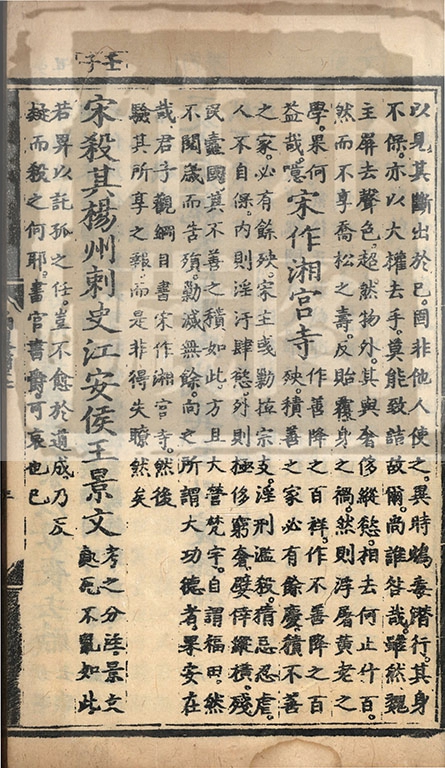 壬子
以見其斷出於已固非他人使之異時鴆毒潛行其身
不保亦以大權去手莫能致詰故爾尚誰咎哉雖然魏
主屏去聲色超然物外其與奢侈縱慾相去何止什百
然而不享喬松之壽反貽覆身之禍然則浮屠黃老之
學果何
益哉噫
宋作湘宮寺
作善降之百祥作不善降之百
殃積善之家必有餘慶積不善
之家必有餘殃宋主彧勦拉宗支淫刑濫殺猜忌忍虐
人不自保內則淫汙肆慾外則極侈窮奢嬖倖縱橫殘
民蠹國其不善之積如此方且大營梵宇自謂福田然
不閱歲而告殞勦滅無餘向之所謂大功德者果安在
哉君子觀綱目書宋作湘宮寺然後
驗其所享之報而是非得失瞭然矣
宋殺其楊州刺史江安侯王景文
考之分注景文
死不亂如此
若畀以託孤之任豈不愈於道成乃反
疑而殺之何耶書官書爵可哀也已